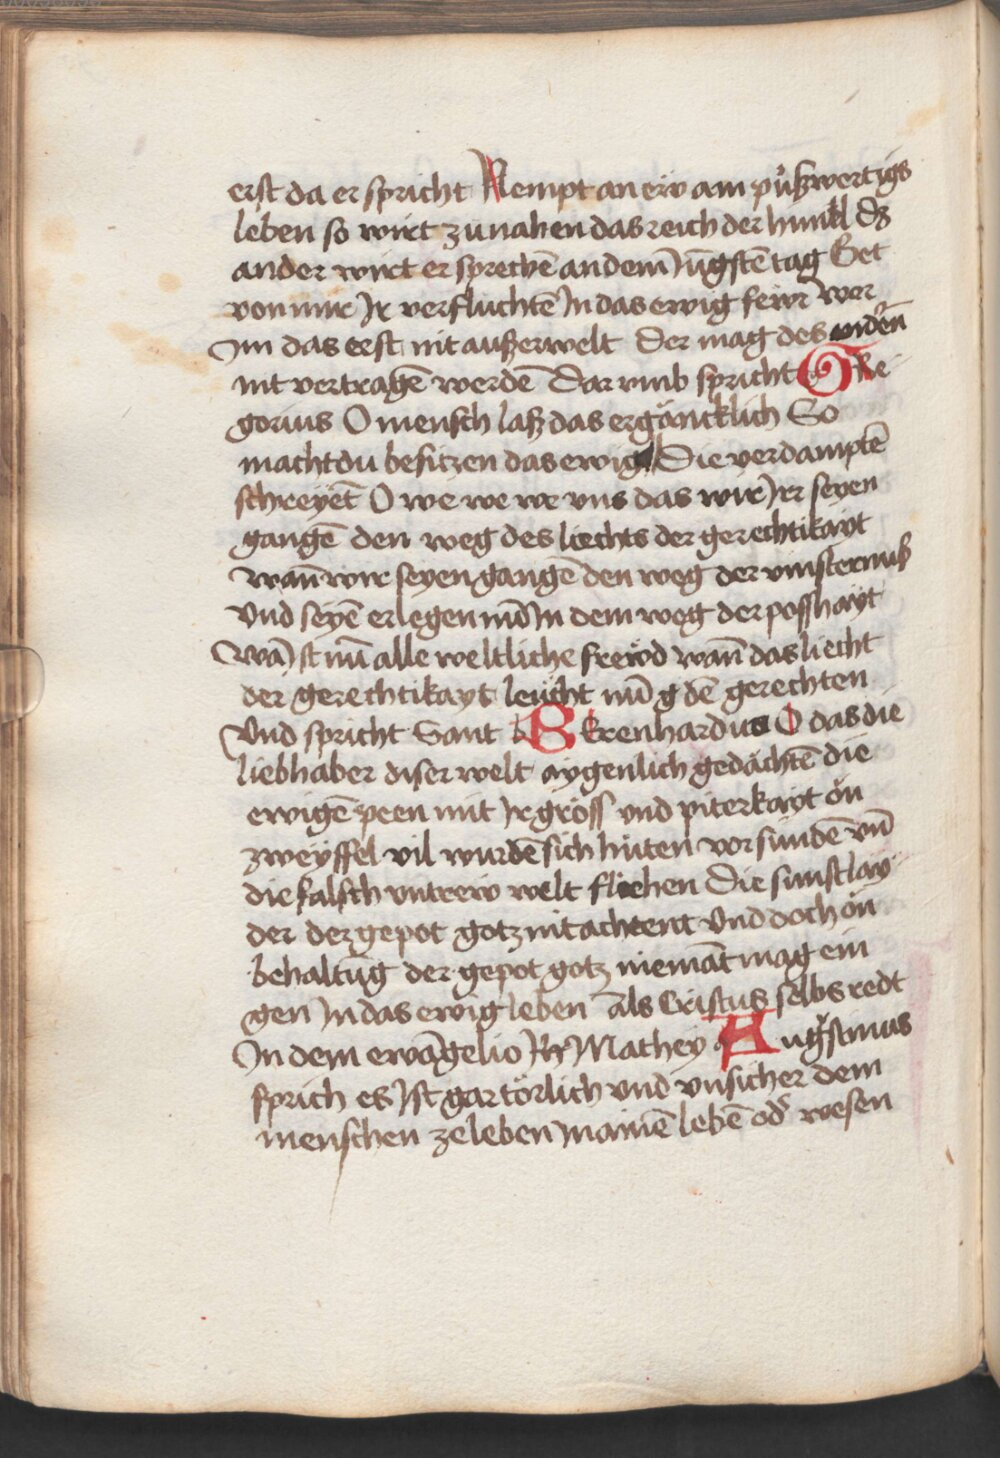 erst da er spricht Nempt an ew am pußwertigs
leben so wirt zu nahen das reich der himl Ds
ander wirt er sprechē an dem Jūgstē tag Get
von mir Jr verfluchtē Jn das ewig fewr wer
Jm das erst nit außerwelt der mag des andˀen
nit vertragē werdē Dar vmb spricht GRe
gorius O mensch laß das ergäncklich So
macht du besitzen das ewig Die verdamptē
schreyēt O we we we vns das wir Jrr seyen
gangē den weg des liechts der gerechtikayt
wañ wir seyen gangē den weg der vinsternuß
Vnd seyē erlegen nūn Jn dem weg der posshayt
Wa Jst nū alle weltliche frewd wañ das liecht
der gerechtikayt leücht nū g dē gerechten
Vnd spricht Sant BErenhardus O das die
liebhaber diser welt aygenlich gedächtē die
ewigē peen mit Jr gröss vnd piterkayt ön
zweyffel vil wurdē sich hüten vor sundē vñ
die falsch vntrew welt fliehen Die sunst lay
der der gepot gotz nit achtent Vnd doch ön
behaltūg der gepot gotz niemāt mag ein
gen Jn das ewig leben als Cristus selbs redt
Jn dem ewāgelio Mathey Augstinus
sprich es Jst gar törlich vnd vnsicher dem
menschen ze leben Jn ainē lebē odˀ wesen